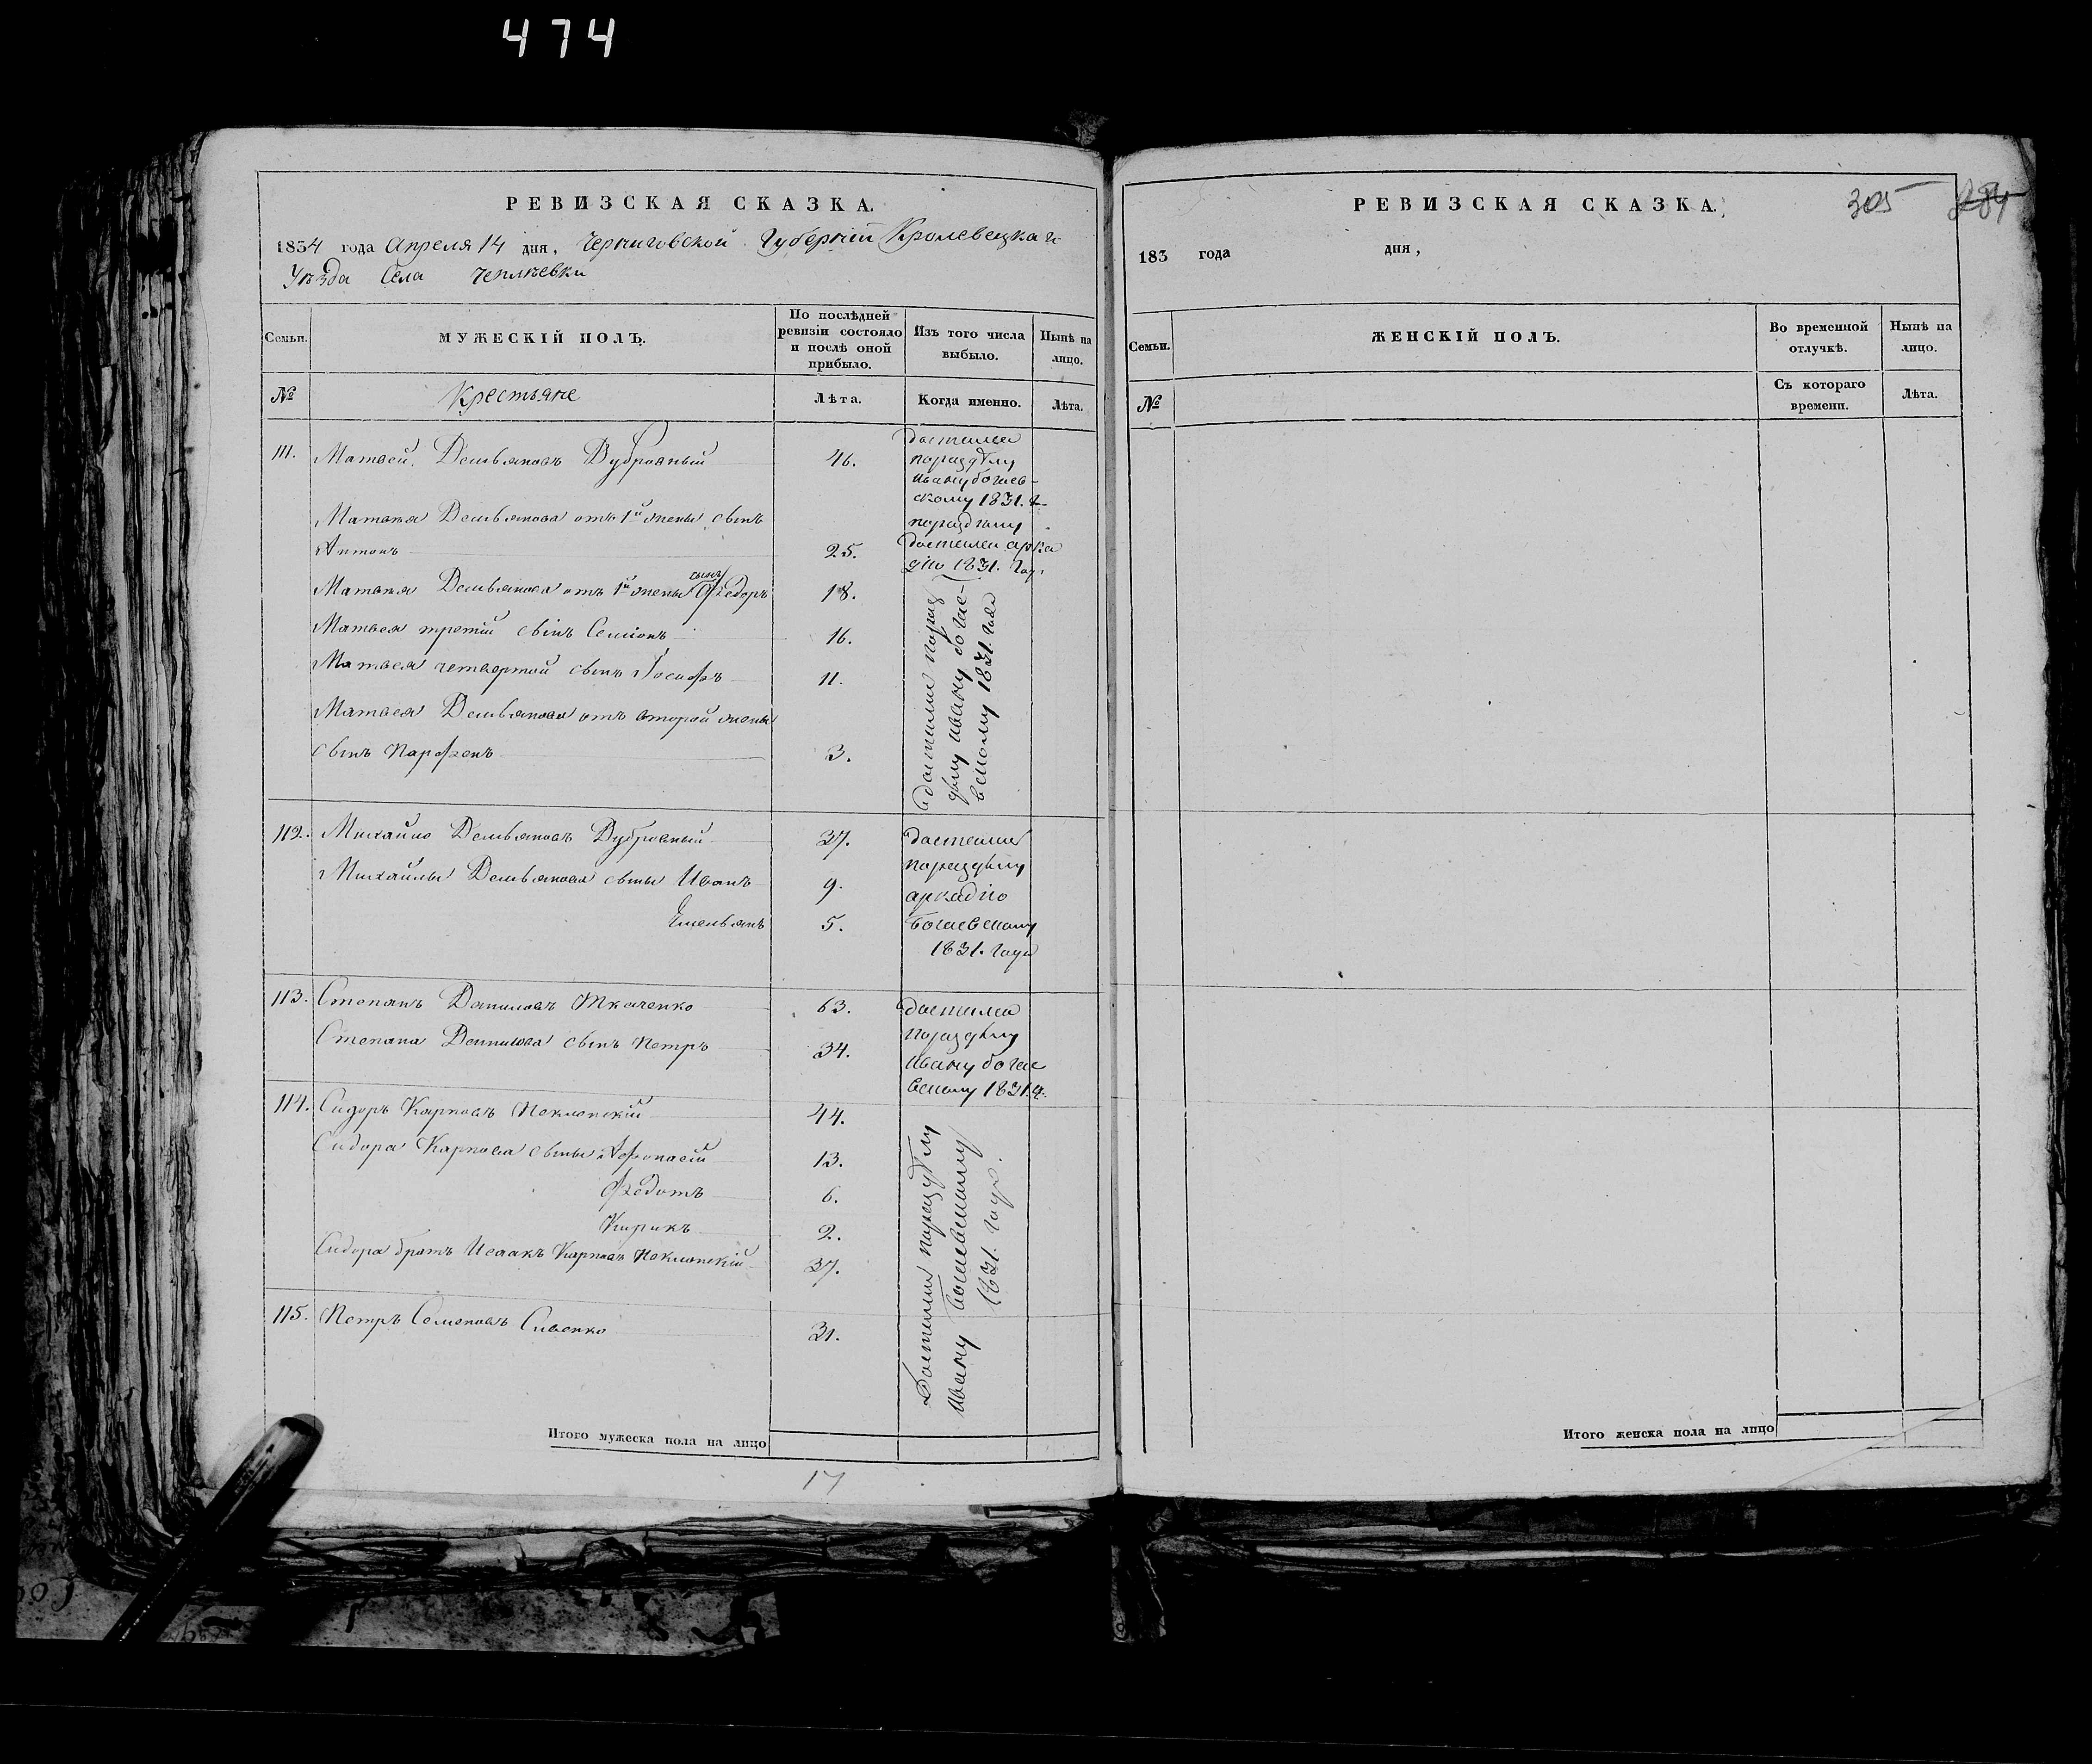 474
РЕВИЗСКАЯ СКАЗКА.
1834 года Апреля 14 дня, Черниговской Губерніи Кролевецкаго
Уѣзда Села Чеплѣевки
Семьи.
МУЖЕСКІЙ ПОЛЪ.
По послѣдней ревизіи состояло и послѣ оной прибыло.
Изъ того числа выбыло.
Нынѣ на лицо.
№
Крестьяне
Лѣта.
Когда именно.
Лѣта.
111. Матвей Демьяновъ Дубровный 46.
достался
по разделу
Ивану богаев-
скому 1831. г.
Матвея Демьянова отъ 1й жены сынъ
Антонъ 25.
по разделу
достался арка
дію 1831. год.
Матвея Демьянова отъ 1й жены сынъ Федоръ 18.
Матвея третій сынъ Семіонъ 16.
Матвея четвертой сынъ Іосифъ 11.
Матвея Демьянова отъ второй жены
сынъ Парфенъ 3.
достались по раз
делу Ивану богае-
вскому 1831. года
112. Михайло Демьяновъ Дубровный 37.
Михайлы Демьянова сыны Иванъ 9.
Емельянъ 5.
достались
по разделу
аркадію
Богаевскому
1831. года
113. Степанъ Даниловъ Ткаченко 63.
Степана Данилова сынъ Петръ 34.
достался
по разделу
Ивану богае
вскому 1831. г.
114. Сидоръ Карповъ Поклонскій 44.
Сидора Карпова сыны Афонасій 13.
Федотъ 6.
Кирикъ 2.
Сидора братъ Исаакъ Карповъ Поклонскій 37.
115. Петръ Семеновъ Сивенко 31.
Достались по разделу
Ивану Богаевскому
1831. года.
Итого мужеска пола на лицо
17
РЕВИЗСКАЯ СКАЗКА.
305
183 года дня,
Семьи.
ЖЕНСКІЙ ПОЛЪ.
Во временной отлучкѣ.
Нынѣ на лицо.
№
Съ котораго времени.
Лѣта.
Итого женска пола на лицо